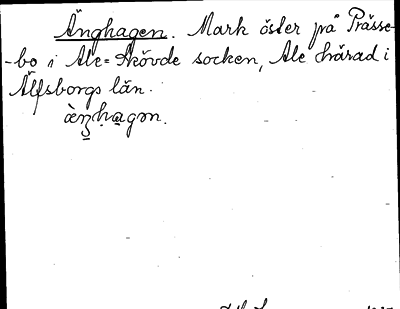 Änghagen. Mark öster på Prässe-
-bo i Ale-Skövde socken, Ale härad i
Älfsborgs län.